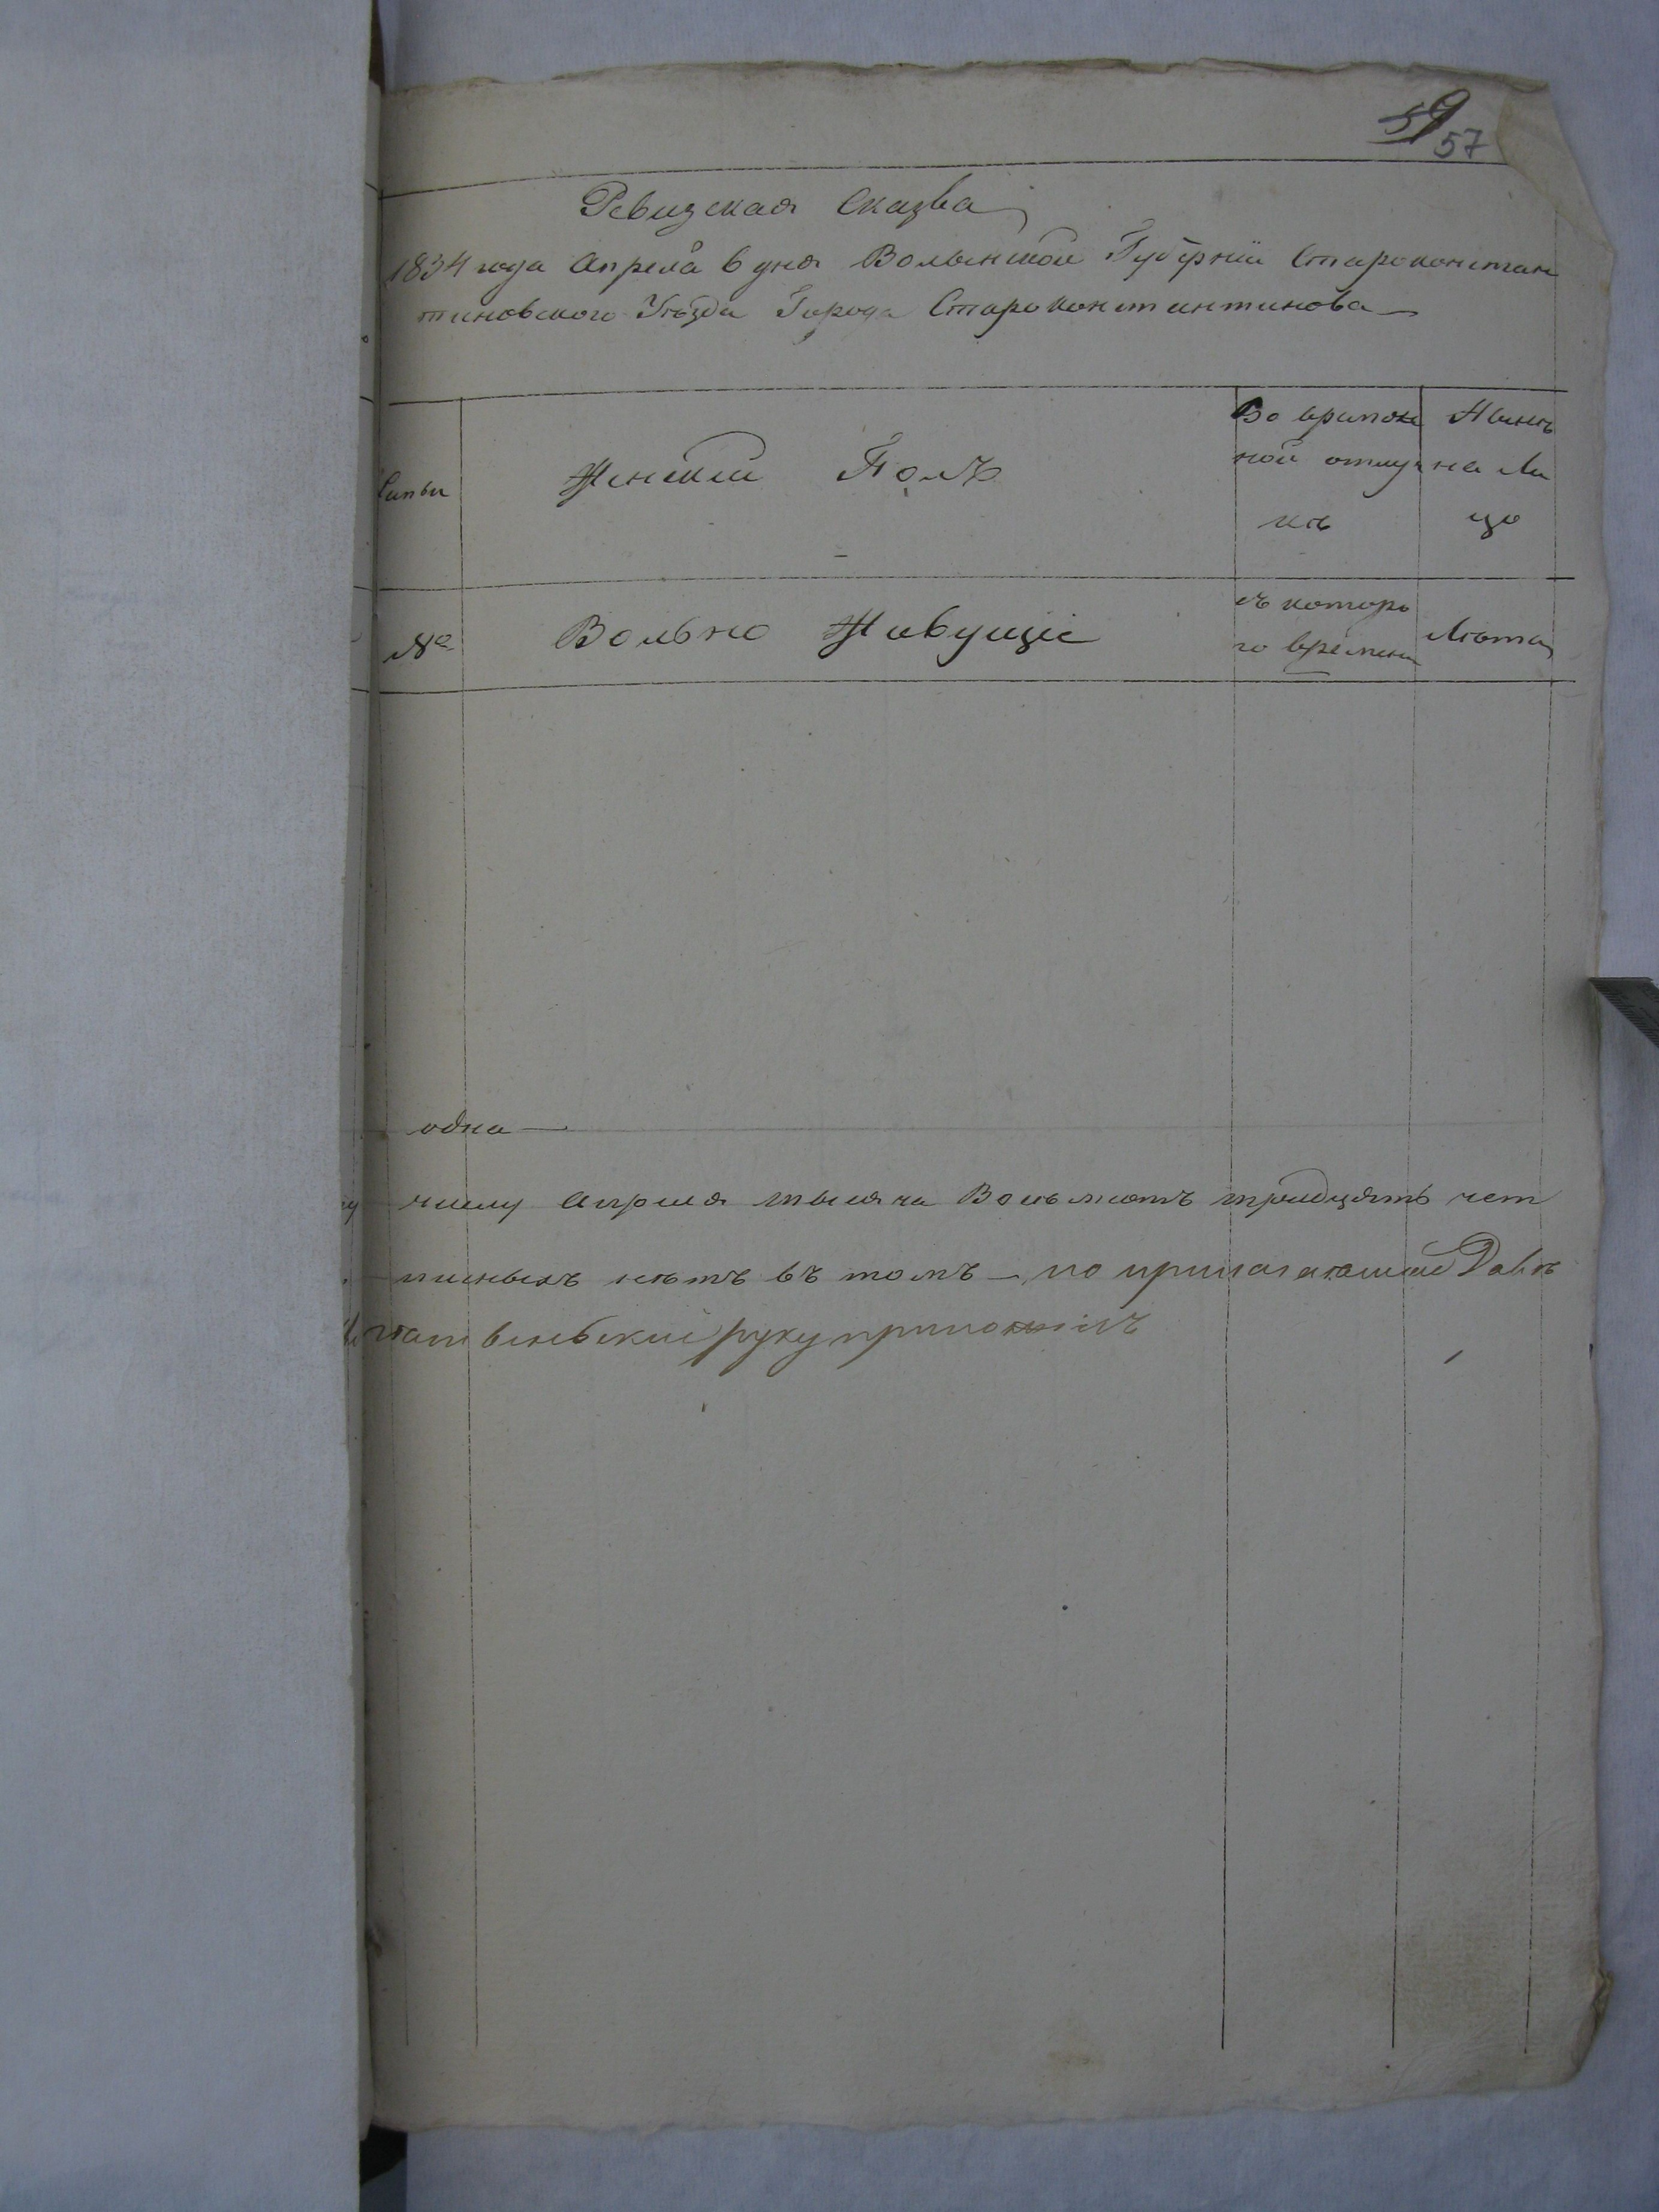 59
57
Ревизская Сказка
1834 года Апреля 6 дня Волынской Губернии Староконстан
тиновского Уѣзда Города Староконстантинова
Семьи
Женский Полъ
Во времен
ной отлуч
кѣ
Нынѣ
на ли
цо
№
Вольно Живущіе
съ которо
го времени
Лѣта
одна
числу Апреля тысяча Восьмсотъ тридцять чет
писныхъ нѣтъ въ томъ
руку приложилъ